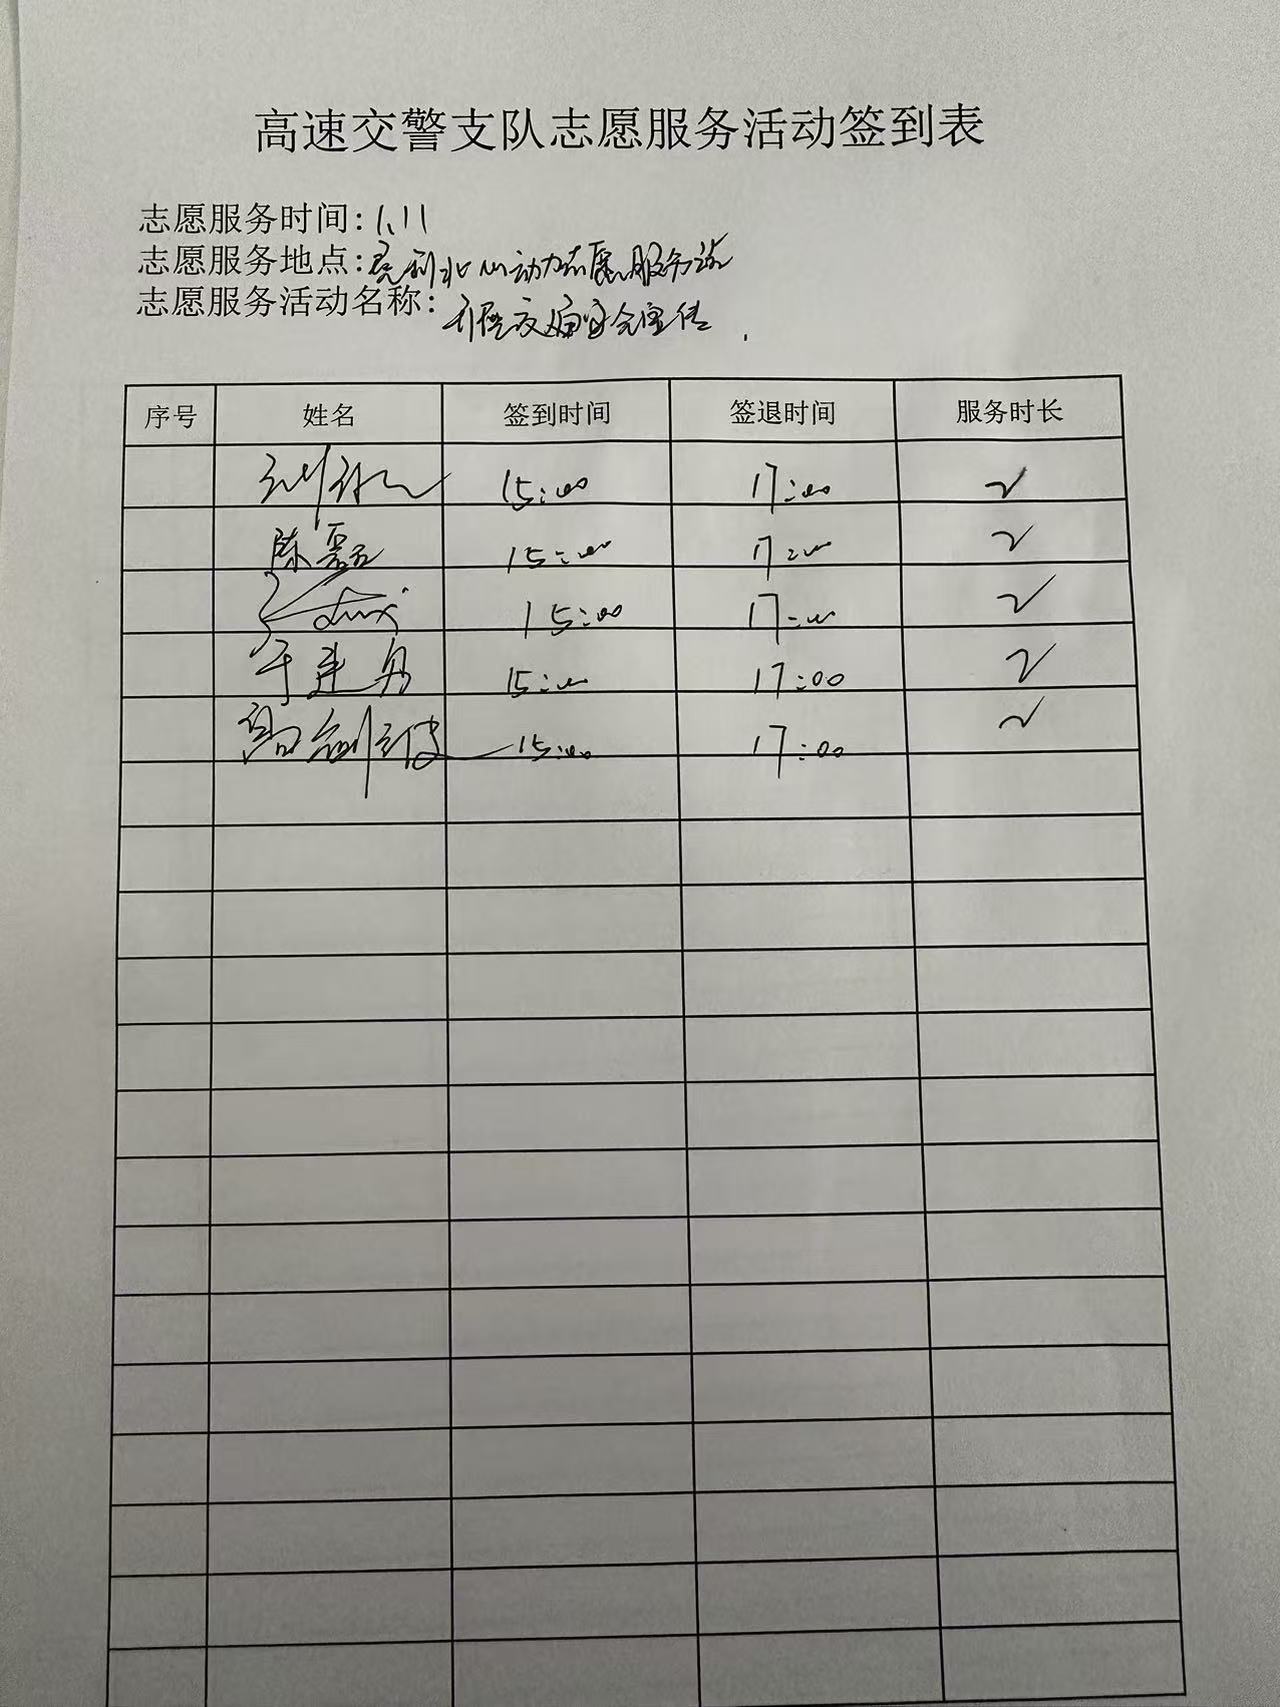 高速交警支队志愿服务活动签到表
志愿服务时间:1.11
志愿服务地点:垦利北心动力志愿服务站
志愿服务活动名称:开展交通安全宣传
序号 姓名 签到时间 签退时间 服务时长
15:00 17:00 2
陈磊 15:00 17:00 2
15:00 17:00 2
于建勇 15:00 17:00 2
15:00 17:00 2